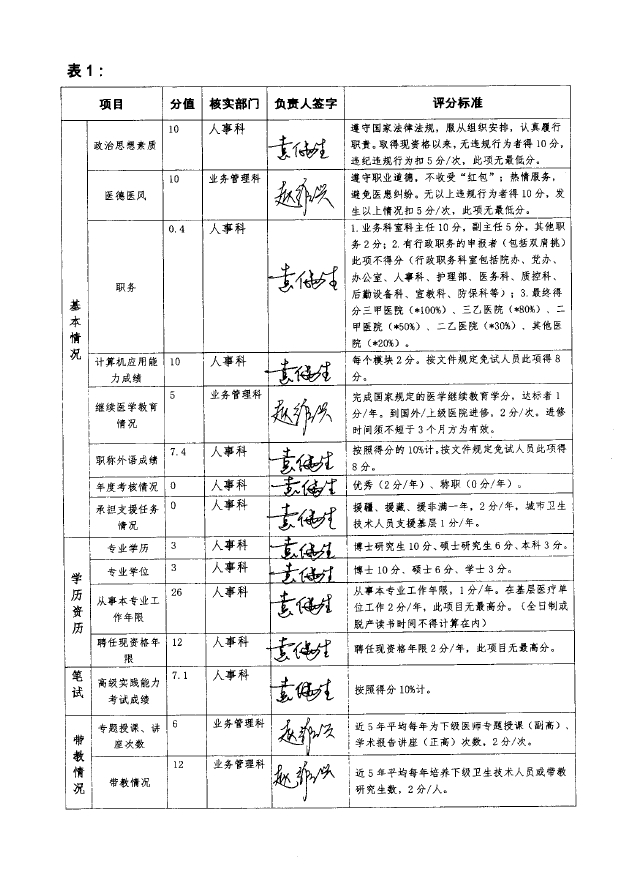 表1：
项目 分值 核实部门 负责人签字 评分标准
基本情况
政治思想素质 10 人事科 袁健生
遵守国家法律法规，服从组织安排，认真履行
职责。取得现资格以来，无违规行为者得10分，
违纪违规行为扣5分/次，此项无最低分。
医德医风 10 业务管理科
遵守职业道德，不收受“红包”；热情服务，
避免医患纠纷。无以上违规行为者得10分，发
生以上情况扣5分/次，此项无最低分。
职务 0.4 人事科 袁健生
1.业务科室科主任10分，副主任5分，其他职
务2分；2.有行政职务的申报者（包括双肩挑）
此项不得分（行政职务科室包括院办、党办、
办公室、人事科、护理部、医务科、质控科、
后勤设备科、宣教科、防保科等）；3.最终得
分三甲医院（*100%）、三乙医院（*80%）、二
甲医院（*50%）、二乙医院（*30%）、其他医
院（*20%）。
计算机应用能
力成绩 10 人事科 袁健生
每个模块2分。按文件规定免试人员此项得8
分。
继续医学教育
情况 5 业务管理科
完成国家规定的医学继续教育学分，达标者1
分/年。到国外/上级医院进修，2分/次。进修
时间须不短于3个月方为有效。
职称外语成绩 7.4 人事科 袁健生
按照得分的10%计。按文件规定免试人员此项得
8分。
年度考核情况 0 人事科 袁健生 优秀（2分/年）、称职（0分/年）。
承担支援任务
情况 0 人事科 袁健生
援疆、援藏、援非满一年，2分/年，城市卫生
技术人员支援基层1分/年。
学历资历
专业学历 3 人事科 袁健生 博士研究生10分、硕士研究生6分、本科3分。
专业学位 3 人事科 袁健生 博士10分、硕士6分、学士3分。
从事本专业工
作年限 26 人事科 袁健生
从事本专业工作年限，1分/年。在基层医疗单
位工作2分/年，此项目无最高分。（全日制或
脱产读书时间不得计算在内）
聘任现资格年
限 12 人事科 袁健生 聘任现资格年限2分/年，此项目无最高分。
笔试
高级实践能力
考试成绩 7.1 人事科 袁健生 按照得分10%计。
带教情况
专题授课、讲
座次数 6 业务管理科
近5年平均每年为下级医师专题授课（副高）、
学术报告讲座（正高）次数，2分/次。
带教情况 12 业务管理科
近5年平均每年培养下级卫生技术人员或带教
研究生数，2分/人。